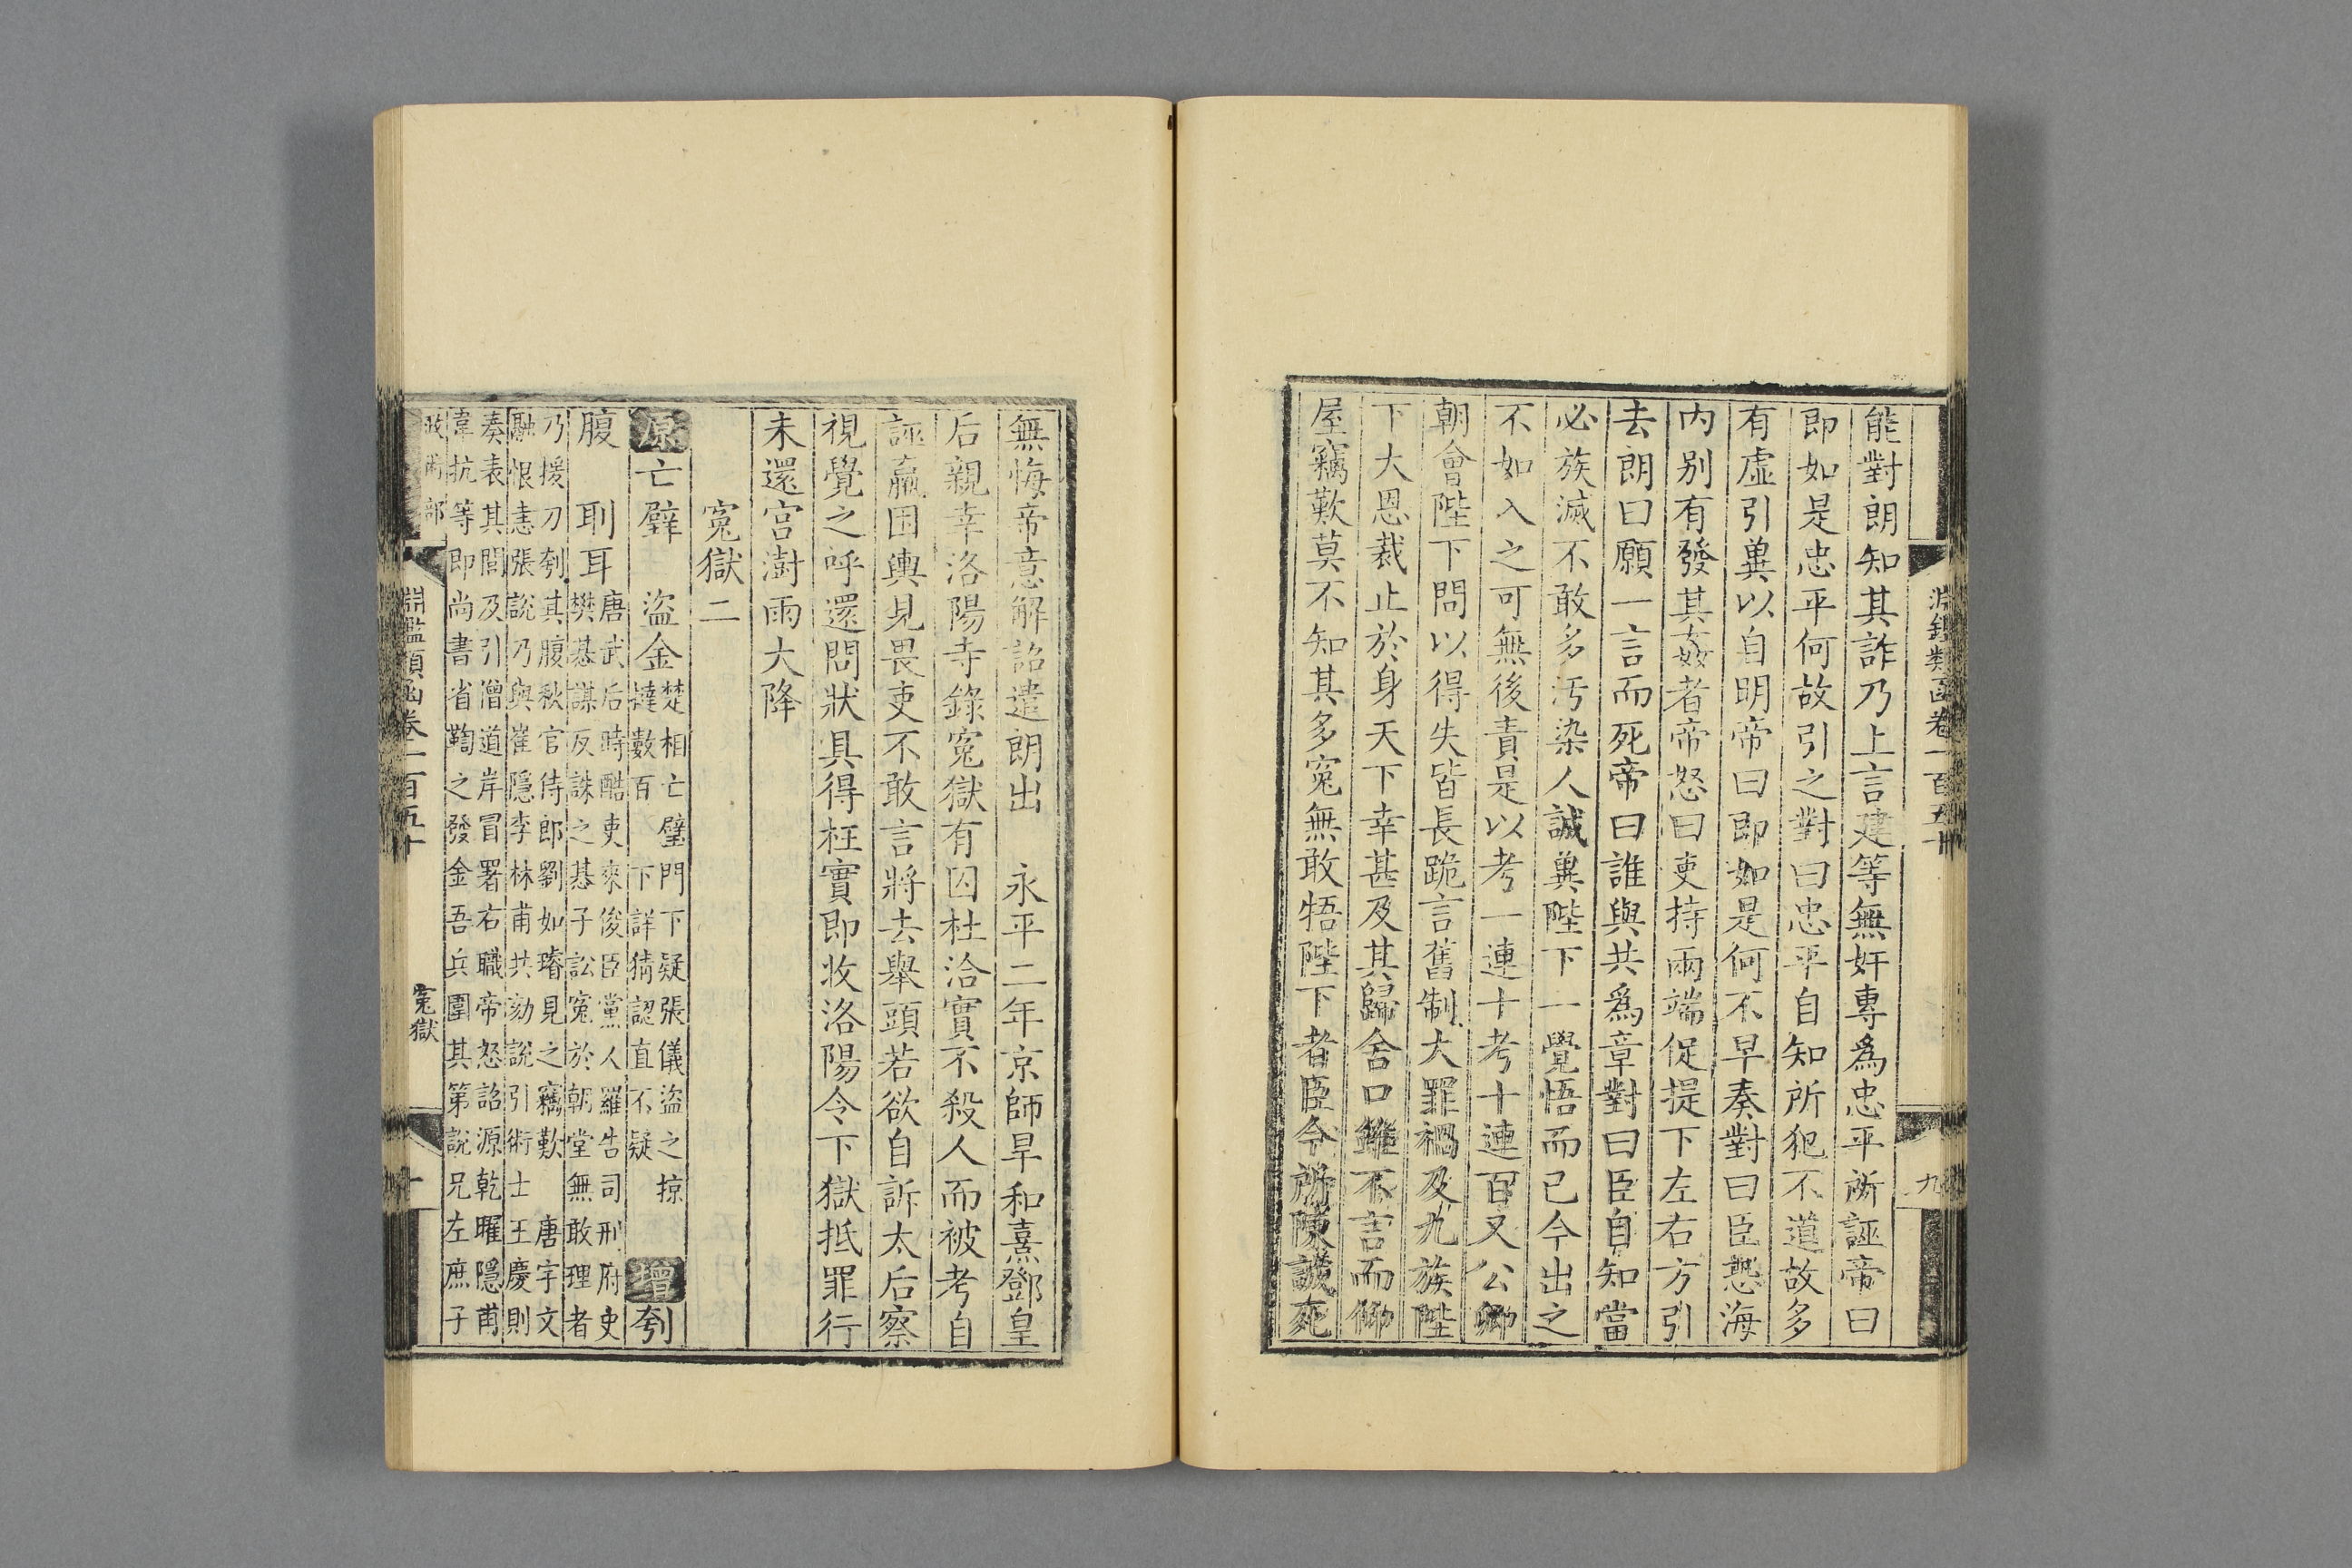 淵鑑類函卷一百五十
九
能對朗知其詐乃上言建等無奸專爲忠平所誣帝曰
即如是忠平何故引之對曰忠平自知所犯不道故多
有虛引兾以自明帝曰即如是何不早奏對曰臣恐海
内别有發其姦者帝怒曰吏持兩端促提下左右方引
去朗曰願一言而死帝曰誰與共爲章對曰臣自知當
必族滅不敢多汚染人誠兾陛下一覺悟而已今出之
不如入之可無後責是以考一連十考十連百又公卿
朝會陛下問以得失皆長跪言舊制大罪禍及九族陛
下大恩裁止於身天下幸甚及其歸舍口雖不言而仰
屋竊歎莫不知其多寃無敢牾陛下者臣今所陳誠死
無悔帝意解詔遣朗出　永平二年京師旱和熹鄧皇
后親幸洛陽寺錄寃獄有囚杜洽實不殺人而被考自
誣羸困輿見畏吏不敢言將去舉頭若欲自訴太后察
視覺之呼還問狀具得枉實即收洛陽令下獄抵罪行
未還宮澍雨大降
寃獄二
原亡璧　盜金楚相亡璧門下疑張儀盜之掠
撻數百　下詳猜認直不疑　增刳
腹　刵耳唐武后時酷吏來俊臣黨人羅告司刑府史
樊惎謀反誅之惎子訟寃於朝堂無敢理者
乃援刀刳其腹秋官侍郎劉如璿見之竊歎　唐宇文
融恨恚張說乃與崔隱李林甫共劾說引術士王慶則
奏表其閭及引僧道岸冒署右職帝怒詔源乾曜隱甫
韋抗等即尚書省鞫之發金吾兵圍其第說兄左庶子
政術部
淵鑑類函卷一百五十
寃獄
十